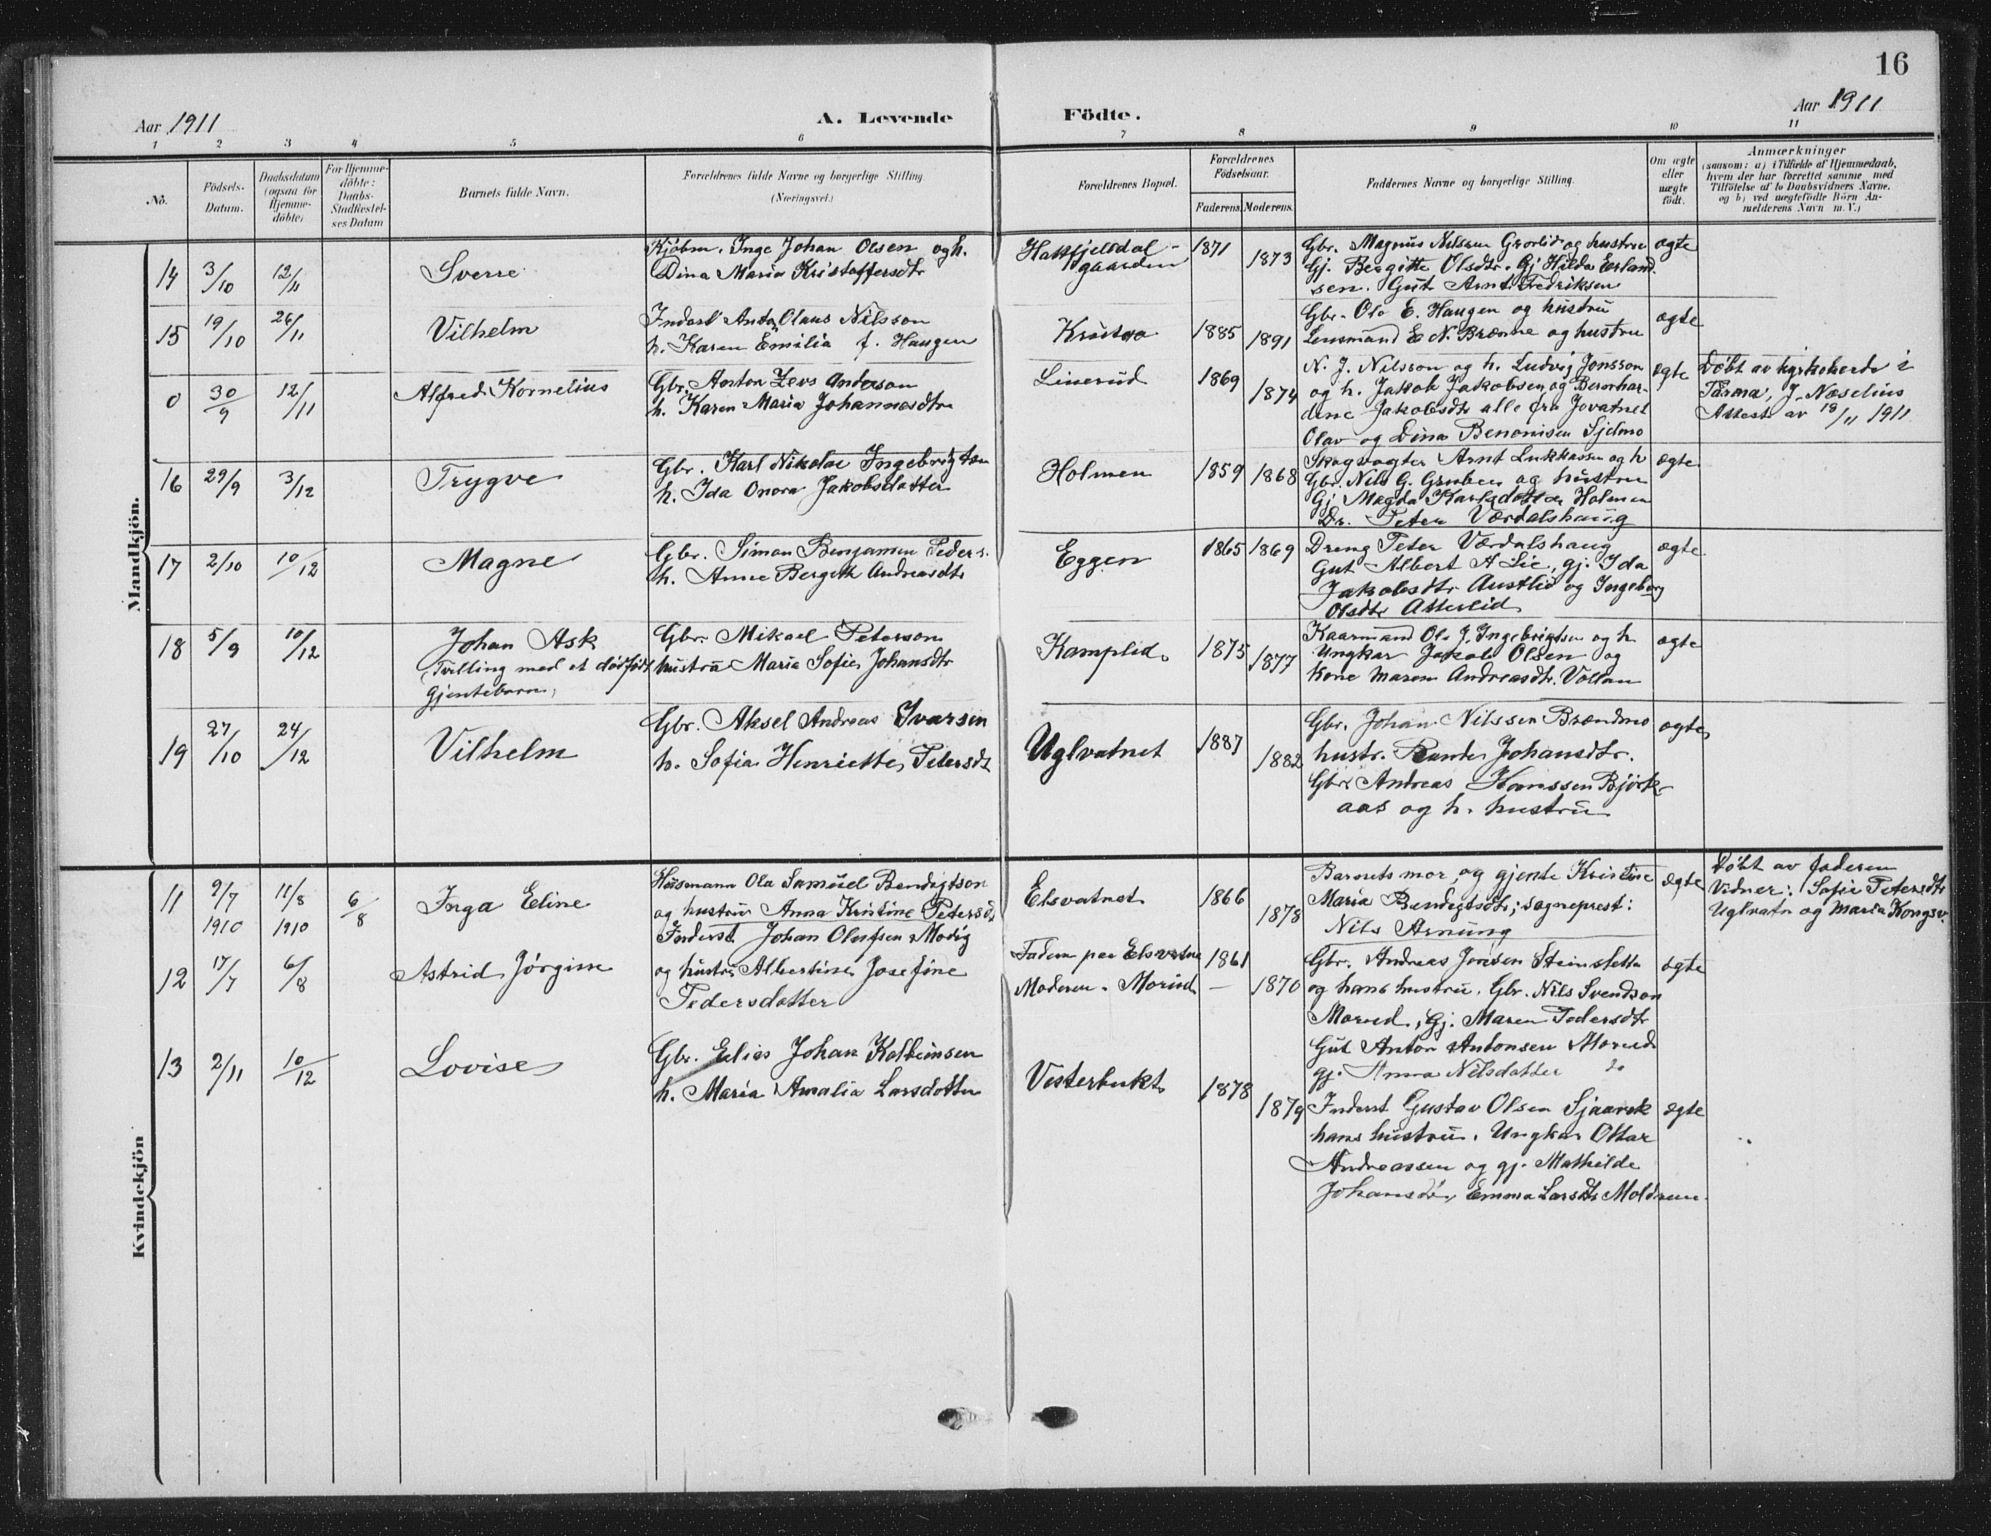 16
Aar 1911 A. Levende Födte. Aar 1911
1 2 3 4 5 6 7 8 9 10 11
No.
Födsels-
Datum.
Daabsdatum
(ogsaa for
Hjemme-
döbte)
For Hjemme-
döbte:
Daabs-
Stadfæstel-
ses Datum
Barnets fulde Navn.
Forældrenes fulde Navne og borgerlige Stilling
(Næringsvei.)
Forældrenes Bopæl.
Forældrenes
Födselsaar.
Faderens. Moderens.
Faddernes Navne og borgerlige Stilling.
Om ægte
eller
uægte
födt.
Anmærkninger
(saasom: a) i Tilfælde af Hjemmedaab,
hvem der har forrettet samme med
Tilföielse af to Daabsvidners Navne.
og b) ved uægtefödte Börn An-
melderens Navn m. V.)
Mandkjön.
14 3/10 12/11 Sverre
Kjöbm. Inge Johan Olsen og h.
Dina Maria Kristoffersdtr
Hattfjelldal-
gaarden
1871 1873
Gbr. Magnus Nilsen Grorlid og hustru
Gj. Bergitte Olsdtr. Gj Hilda Erland
sen. Gut Arnt Fredriksen
ægte
15 19/10 26/11 Vilhelm
Inderst Anton Olaus Nilsson
h. Karen Emilia f. Haugen
Krutaa
1885 1891
Gbr. Ole E. Haugen og hustru
Lensmand E N. Brænne og hustru
ægte
0 30/9 12/11 Alfred Kornelius
Gbr. Anton Zevs Anderson
h. Karen Maria Johannesdtr
Linerud
1869 1874
N. J. Nilsson og h. Ludvig Jonsson
og h. Jakob Jakobsen og Bernhar-
dine Jakobsdtr alle fra Jovatnet
Olav og Dina Benonisen Sjelmo
ægte
Döbt av kyrkoherde i
Tärna, J. Næselius
Attest av 19/11 1911
16 29/9 3/12 Trygve
Gbr. Karl Nikolai Ingebrigtsen
h. Ida Onora Jakobsdatter
Holmen
1859 1868
Skogvogter Arnt Lukkassen og h
Gbr. Nils G. Gruben og hustru
Gj Magda Karlsdatter Holmen
Dr. Peter Værdalshaug
ægte
17 2/10 10/12 Magne
Gbr. Simon Benjamin Peders.
h. Anne Bergith Andreasdtr
Eggen
1865 1869
Dreng Peter Værdalshaug
Gut Albert A Lie, gj. Ida
Jakobsdtr Austlid og Ingeborg
Olsdtr Atterlid
ægte
18 5/9 10/12 Johan Ask
(Tvilling med et dödfödt
Gjentebarn)
Gbr. Mikael Peterson
hustru Maria Sofie Johansdtr
Kamplid
1875 1877
Kaarmand Ole J. Ingebrigtsen og h.
Ungkar Jakob Olsen og
Kone Maren Andreasdtr. Vollan
ægte
19 27/10 24/12 Vilhelm
Gbr. Aksel Andreas Ivarsen
h. Sofia Henriette Petersdt
Uglvatnet
1887 1882
Gbr. Johan Nilssen Brændmo
hustr. Johansdtr.
Gbr. Andreas Hanssen Björk-
aas og h. hustru
ægte
Kvindekjön
11 9/7 1910 11/8 1910 6/8 Inga Eline
Husmann Ola Samuel Bendigtson
og hustru Anna Kristine Petersdt
Elsvatnet
1866 1878
Barnets mor og gjente Kristine
Maria Bendigtsdtr; sogneprest:
Nils Arnung
ægte
Döbt av faderen
Vidner: Sofie Petersdtr
Uglvatn og Maria Kongsv.
12 17/7 6/8 Astrid Jörgine
Inderst Johan Olufsen Modig
og hustru Albertine Josefine
Pedersdatter
Faderen paa Elsvatne
Moderen - Morud
1861 1870
Gbr. Andreas Jonsen Steinslette
og hans hustru. Gbr. Nils Svendson
Morud, Gj. Maren Pedersdtr
Gut Anton Antonsen Morud
gj. Anna Nilsdatter do
ægte
13 2/11 10/12 Lovise
Gbr. Elias Johan Kolbeinsen
h. Maria Amalia Larsdatter
Vesterbukt
1878 1879
Inderst Gustav Olsen Sjaavik
hans hustru. Ungkar Ottar
Andreassen og gj. Mathilde
Johansdtr, Emma Larsdtr Moldrem
ægte